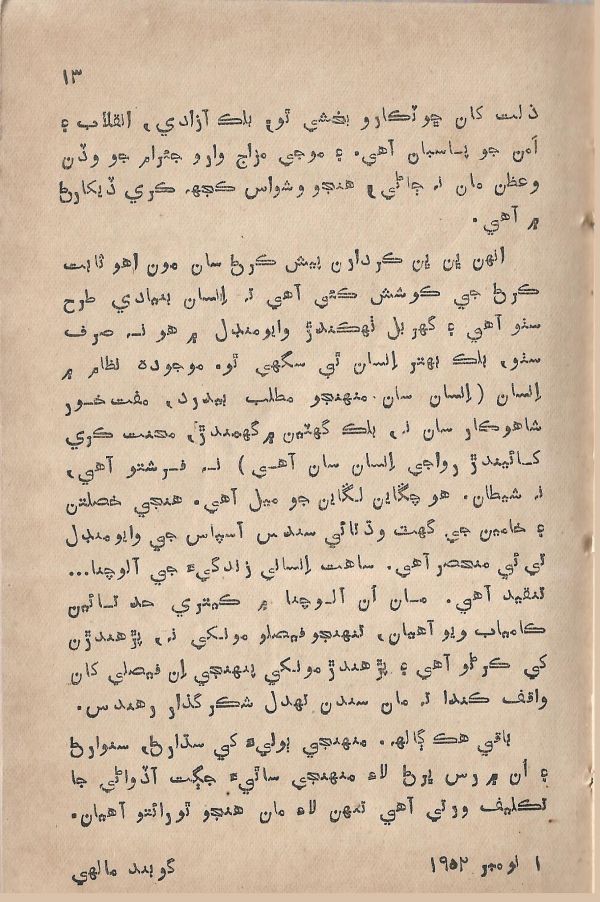 ١٣
ذلت کان ڇوٽڪارو بخشي ٿو، بلڪ آزادي، انقلاب ۽
امن جو پاسبان آهي. ۽ موجي مزاج وارو جئرام جو وڏن
وعظن مان نہ ڄاڻي، هنجو وشواس ڪجهہ ڪري ڏيکارڻ
۾ آهي.
انهن ٻن ٻن ڪردارن پيش ڪرڻ سان مون اهو ثابت
ڪرڻ جي ڪوشش ڪئي آهي تہ اِنسان بنيادي طرح
سٺو آهي ۽ گهربل ٺهڪندڙ وايومنڊل ۾ هو نہ صرف
سٺو، بلڪ بهتر اِنسان ٿي سگهي ٿو. موجوده نظام ۾
اِنسان (اِنسان سان منهنجو مطلب بيدرد، مفت خور
شاهوڪار سان نہ، بلڪ گهٽين ۾ گهمندڙ، محنت ڪري
کائيندڙ رواجي اِنسان سان آهي) نہ فرشتو آهي،
نہ شيطان. هو چڱاين لڱاين جو ميل آهي. هنجي خصلتن
۽ خامين جي گهٽ وڌائي سندس آسپاس جي وايومنڊل
تي ئي منحصر آهي. ساهت اِنساني زندگيءَ جي آلوچنا...
تنقيد آهي. مان اُن آلوچنا ۾ ڪيتري حد تائين
ڪامياب ويو آهيان، تنهنجو فيصلو مونکي نہ، پڙهندڙن
کي ڪرڻو آهي ۽ پڙهندڙ مونکي پنهنجي اِن فيصلي کان
واقف ڪندا تہ مان سندن تهدل شڪرگذار رهندس.
باقي هڪ ڳالهہ. منهنجي ٻوليءَ کي سڌارڻ، سنوارڻ
۽ اُن ۾ رس ڀرڻ لاءِ منهنجي ساٿيءَ جڳت آڏواڻيءَ جا
تڪليف ورتي آهي تنهن لاءِ مان هنجو ٿورائتو آهيان.
١ نومبر ١٩٥٢
گوبند مالهي